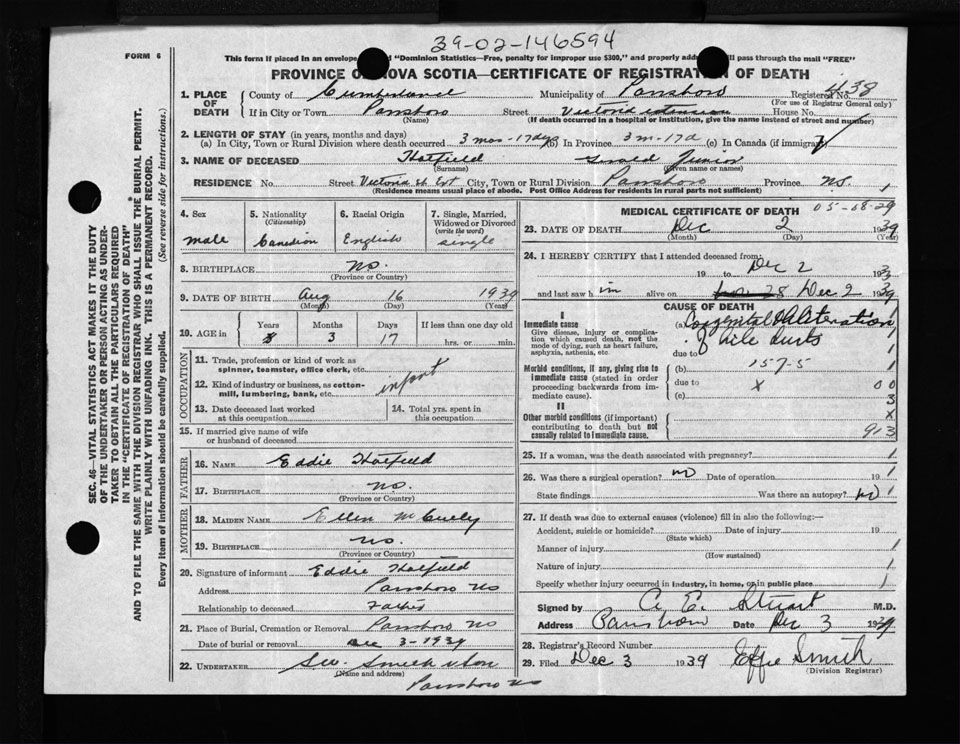 39-02-146594
FORM 6
This form if placed in an envelope "Dominion Statistics—Free, penalty for improper use $300," and properly addre will pass through the mail "FREE"
PROVINCE OF NOVA SCOTIA—CERTIFICATE OF REGISTRATION OF DEATH
1. PLACE OF DEATH
County of Cumberland Municipality of Parrsboro Registered No. 438
(For use of Registrar General only)
If in City or Town Parrsboro Street Victoria extension House No.
(Name) (If death occurred in a hospital or institution, give the name instead of street and number)
2. LENGTH OF STAY (in years, months and days)
(a) In City, Town or Rural Division where death occurred 3 mos-17 dys (b) In Province 3 m-17 d (c) In Canada (if immigrant)
3. NAME OF DECEASED Hatfield Gerald Junior
(Surname) (Given name or names)
RESIDENCE No. Street Victoria st Ext City, Town or Rural Division Parrsboro Province N.S. 1
(Residence means usual place of abode. Post Office Address for residents in rural parts not sufficient)
4. Sex
male
5. Nationality
(Citizenship)
Canadian
6. Racial Origin
English
7. Single, Married, Widowed or Divorced
(write the word)
single
8. BIRTHPLACE N.S.
(Province or Country)
9. DATE OF BIRTH Aug 16 1939
(Month) (Day) (Year)
10. AGE in
Years Months Days If less than one day old
3 17 hrs. or min.
OCCUPATION
11. Trade, profession or kind of work as spinner, teamster, office clerk, etc.
12. Kind of industry or business, as cotton-mill, lumbering, bank, etc.
infant
13. Date deceased last worked at this occupation
14. Total yrs. spent in this occupation
15. If married give name of wife or husband of deceased
FATHER
16. NAME Eddie Hatfield
17. BIRTHPLACE N.S.
(Province or Country)
MOTHER
18. MAIDEN NAME Ellen
19. BIRTHPLACE N.S.
(Province or Country)
20. Signature of informant Eddie Hatfield
Address Parrsboro NS
Relationship to deceased Father
21. Place of Burial, Cremation or Removal Parrsboro NS
Date of burial or removal Dec 3-1939
22. UNDERTAKER Smith & Son
(Name and address)
Parrsboro NS
MEDICAL CERTIFICATE OF DEATH 05-08-29
23. DATE OF DEATH Dec 2 1939
(Month) (Day) (Year)
24. I HEREBY CERTIFY that I attended deceased from:
19 to Dec 2 1939
and last saw h im alive on Dec 2 1939
CAUSE OF DEATH
I
Immediate cause
Give disease, injury or complication which caused death, not the mode of dying, such as heart failure, asphyxia, asthenia, etc.
(a) Congenital Obliteration of bile ducts
due to
Morbid conditions, if any, giving rise to immediate cause (stated in order proceeding backwards from immediate cause).
(b) 157-5 1
due to x 00
(c) 3
II
Other morbid conditions (if important) contributing to death but not causally related to immediate cause.
x
913
25. If a woman, was the death associated with pregnancy? 1
26. Was there a surgical operation? no Date of operation 19 1
State findings Was there an autopsy? no 1
27. If death was due to external causes (violence) fill in also the following:—
Accident, suicide or homicide? Date of injury 19
(State which)
Manner of injury 1
(How sustained)
Nature of injury 1
Specify whether injury occurred in industry, in home, or in public place 1
Signed by A. E. Stuart M.D.
Address Parrsboro Date Dec 3 1939
28. Registrar's Record Number
29. Filed Dec 3 1939 Effie Smith
(Division Registrar)
SEC. 46—VITAL STATISTICS ACT MAKES IT THE DUTY OF THE UNDERTAKER OR PERSON ACTING AS UNDERTAKER TO OBTAIN ALL THE PARTICULARS REQUIRED IN THE "CERTIFICATE OF REGISTRATION OF DEATH"
AND TO FILE THE SAME WITH THE DIVISION REGISTRAR WHO SHALL ISSUE THE BURIAL PERMIT.
WRITE PLAINLY WITH UNFADING INK. THIS IS A PERMANENT RECORD.
Every item of information should be carefully supplied. (See reverse side for instructions.)